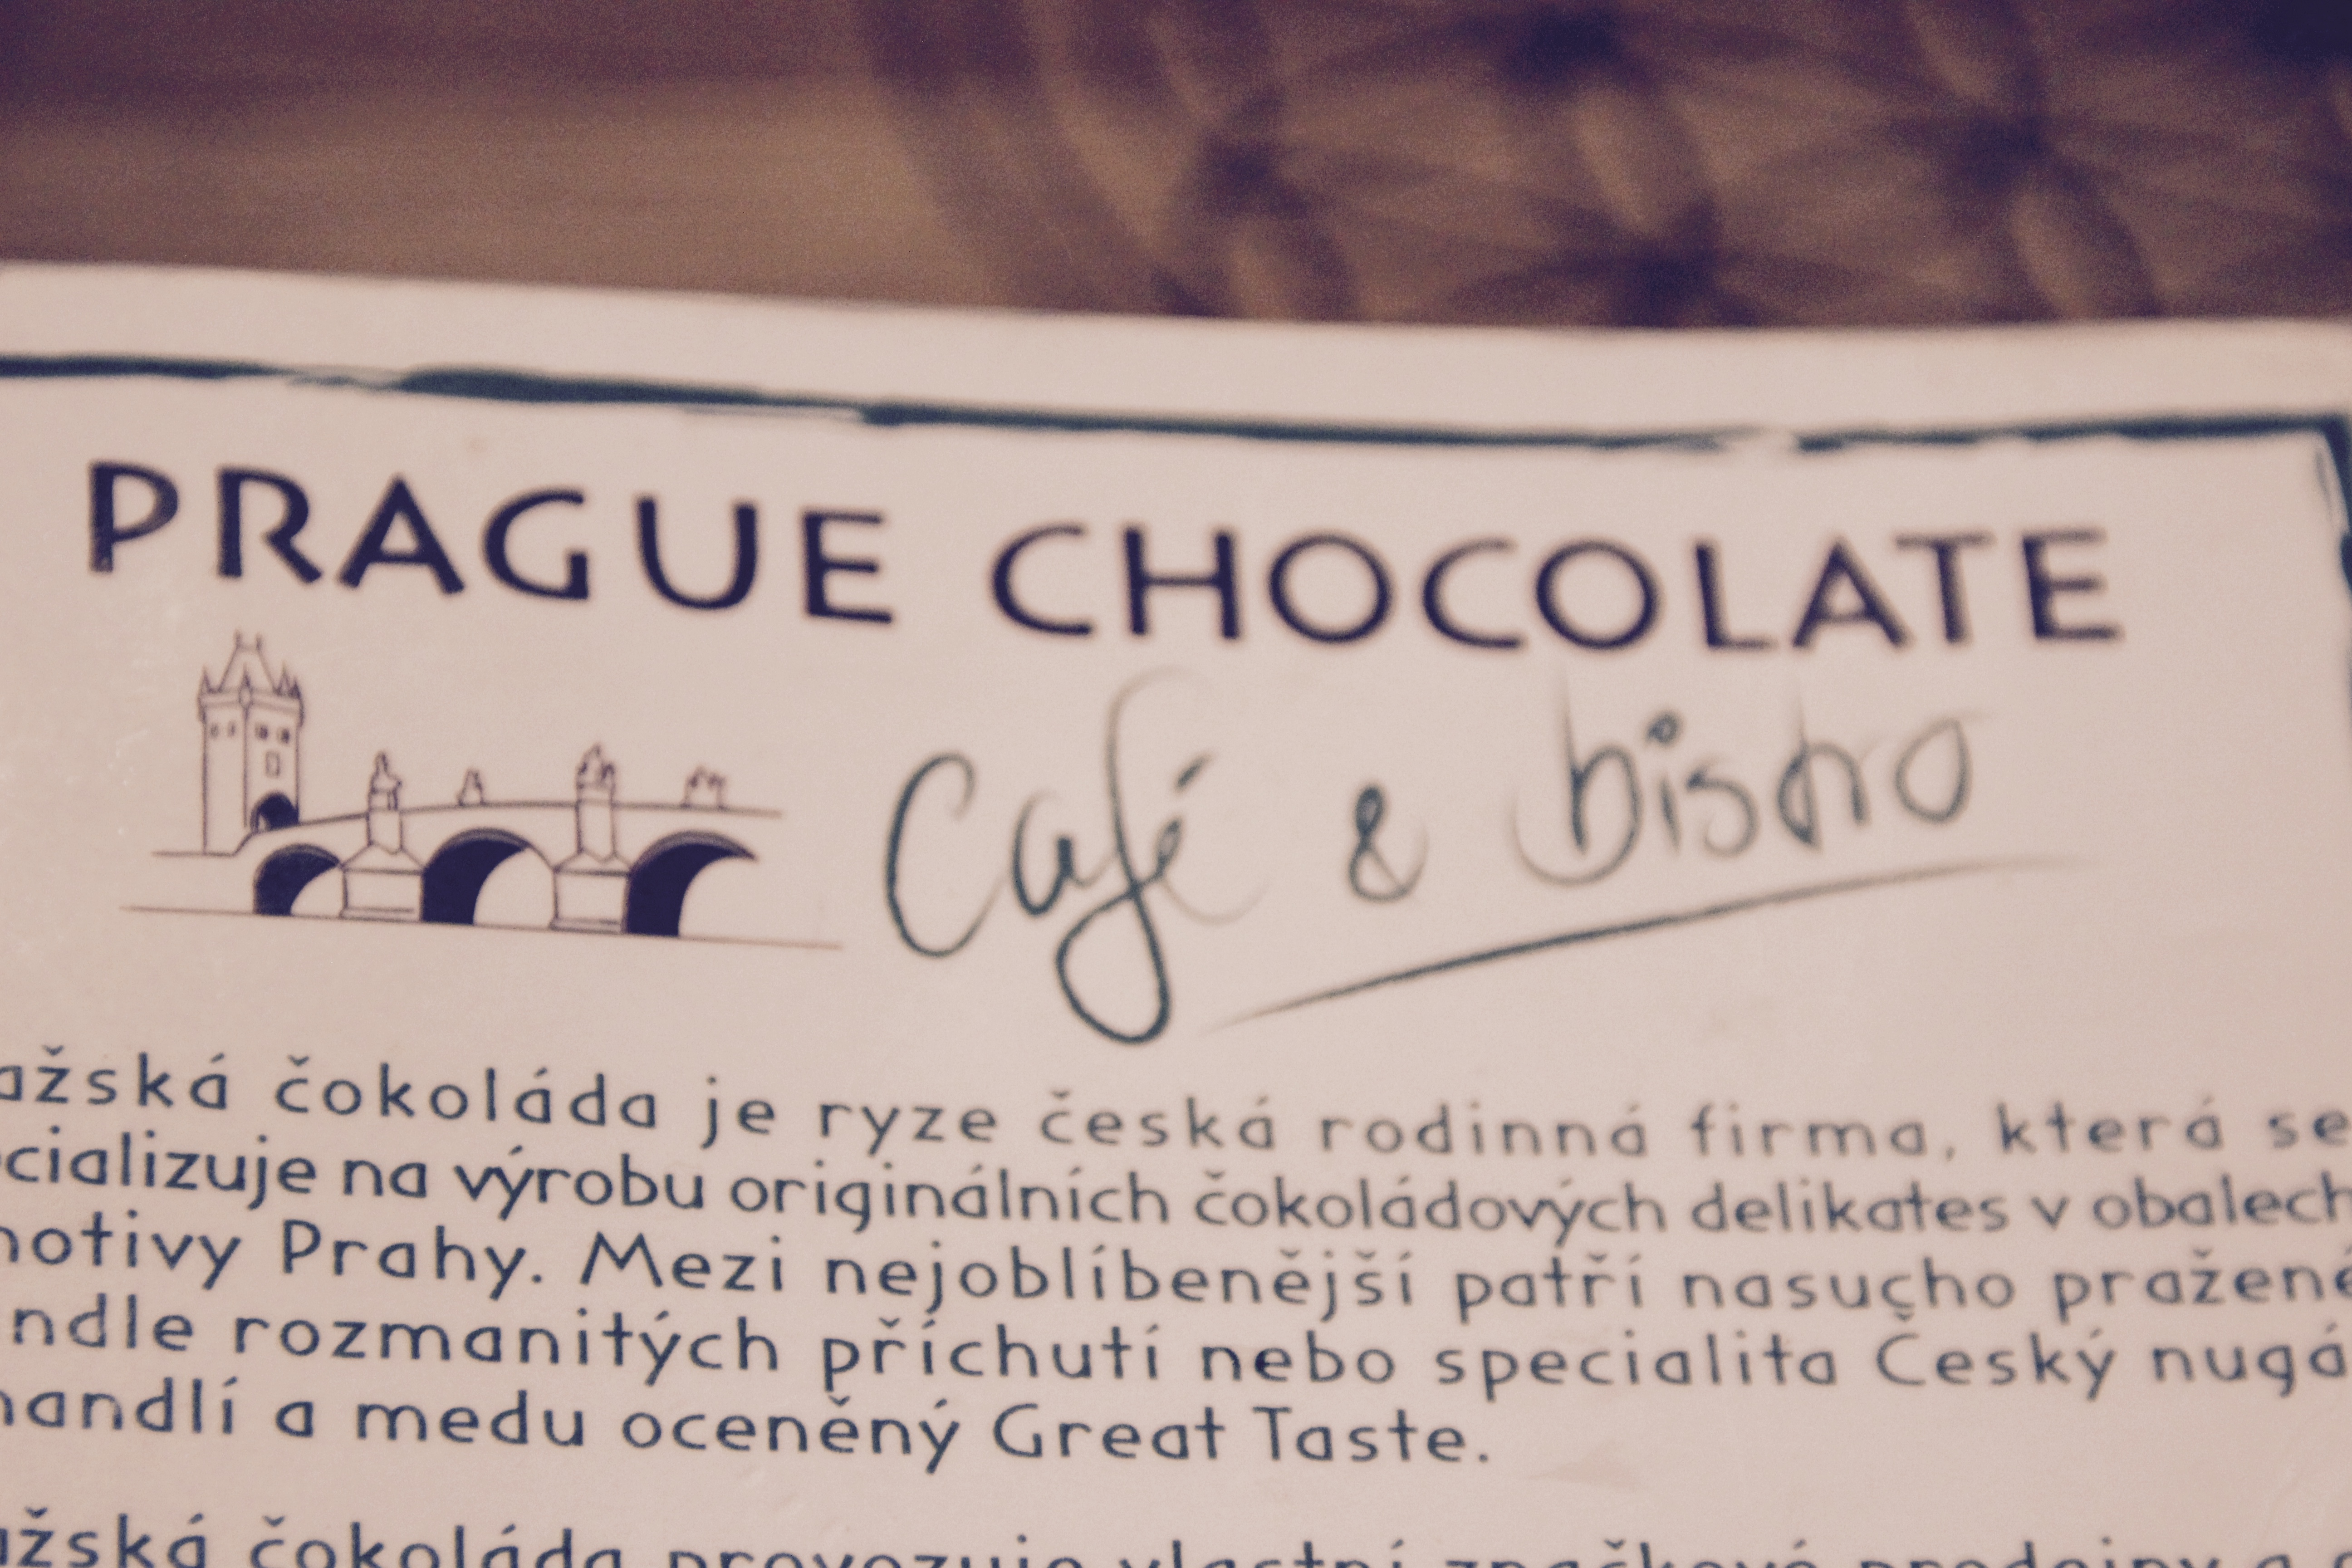 PRAGUE CHOCOLATE
Café & bistro
ažská čokoláda je ryze česká rodinná firma, která se
cializuje na výrobu originálních čokoládových delikates v obalech
otivy Prahy. Mezi nejoblíbenější patří nasucho pražené
ndle rozmanitých příchutí nebo specialita Český nugá
andlí a medu oceněný Great Taste.
ažská čokoláda provozuje vlastní značkové prodejny a